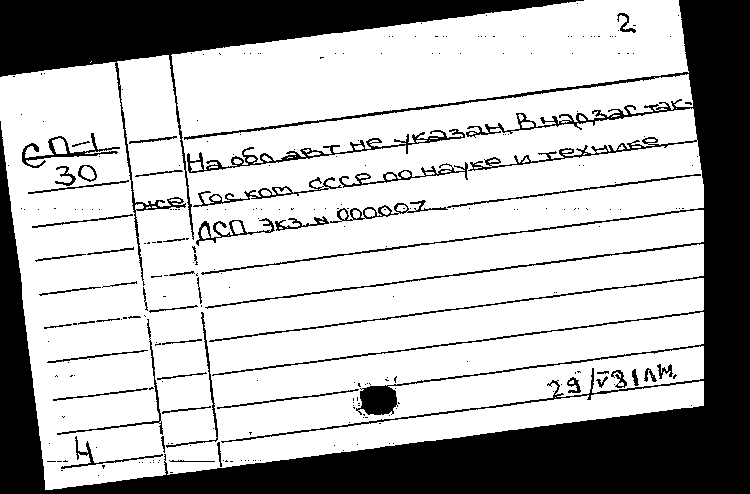 2
СП-1
30
На обл. авт. не указан. В надзаг. так-
же: Гос. ком. СССР по науке и технике.
ДСП. Экз. № 000007
29/V 81 лш.
Ч